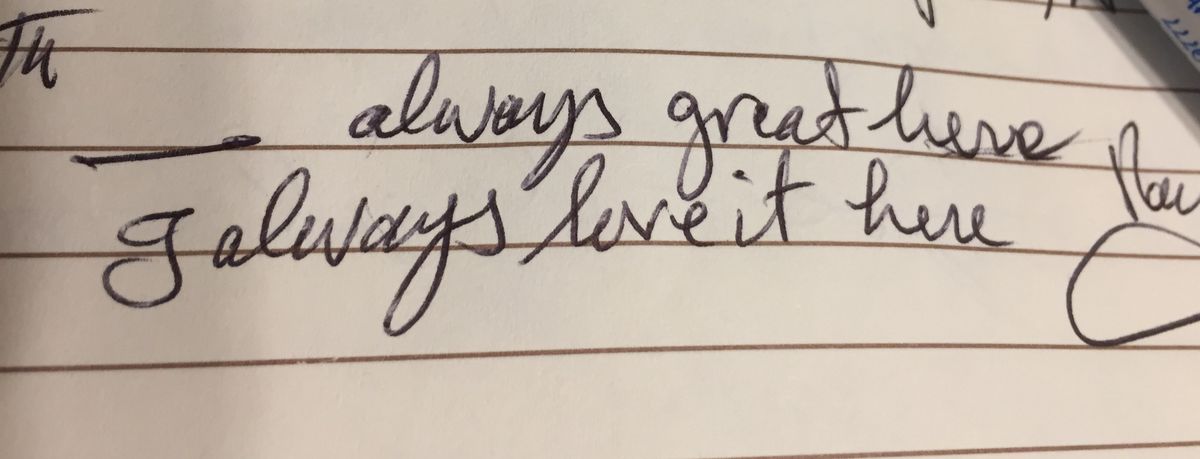 always great here
I always love it here